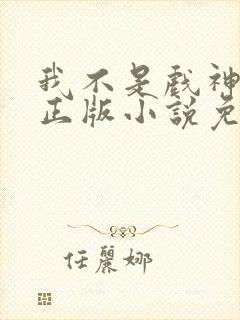 我不是戲神
正版小說免
任麗娜